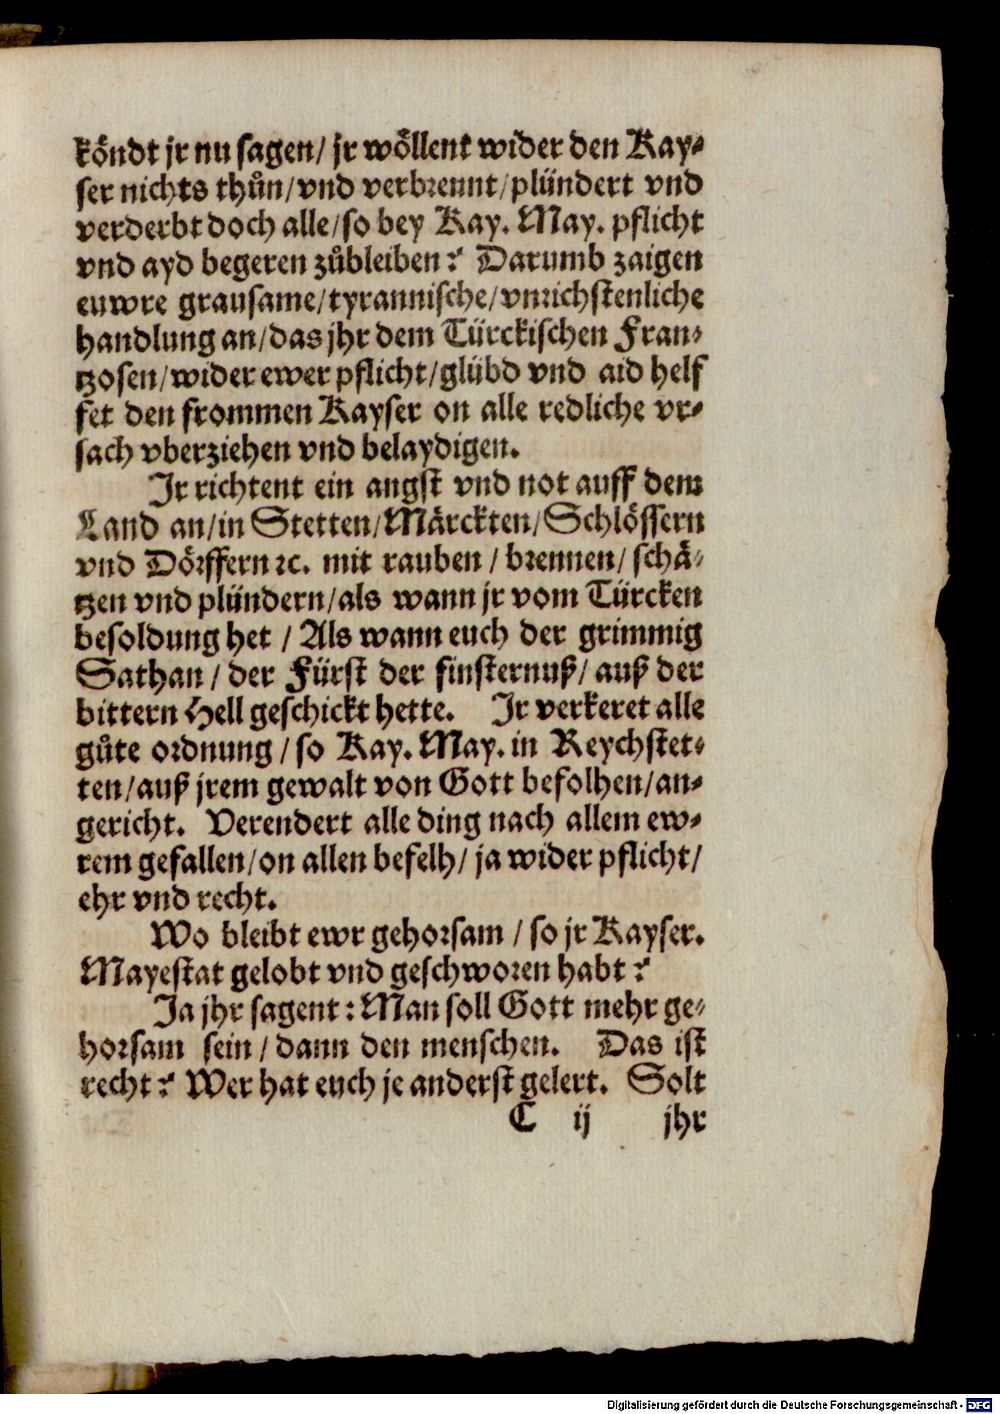 köndt jr nu sagen/ jr wöllent wider den Kay⸗
ser nichts thůn/vnd verbrennt/plündert vnd
verderbt doch alle/so bey Kay. May. pflicht
vnd ayd begeren zůbleiben? Darumb zaigen
euwre grausame/tyrannische/vnrichstenliche
handlung an/das jhr dem Türckischen Fran⸗
tzosen/wider ewer pflicht/glübd vnd aid helf
fet den frommen Kayser on alle redliche vr⸗
sach vberziehen vnd belaydigen.
Jr richtent ein angst vnd not auff dem
Land an/in Stetten/Märckten/Schlössern
vnd Dörffern ꝛc. mit rauben / brennen/ schä⸗
tzen vnd plündern/als wann jr vom Türcken
besoldung het / Als wann euch der grimmig
Sathan / der Fürst der finsternuß/ auß der
bittern Hell geschickt hette. Jr verkeret alle
gůte ordnung / so Kay. May. in Reychstet⸗
ten/auß jrem gewalt von Gott befolhen/an⸗
gericht. Verendert alle ding nach allem ew⸗
rem gefallen/on allen befelh/ ja wider pflicht/
ehr vnd recht.
Wo bleibt ewr gehorsam / so jr Kayser.
Mayestat gelobt vnd geschworen habt?
Ja jhr sagent: Man soll Gott mehr ge⸗
horsam sein / dann den menschen. Das ist
recht? Wer hat euch je anderst gelert. Solt
C ij jhr
Digitalisierung gefördert durch die Deutsche Forschungsgemeinschaft - DFG